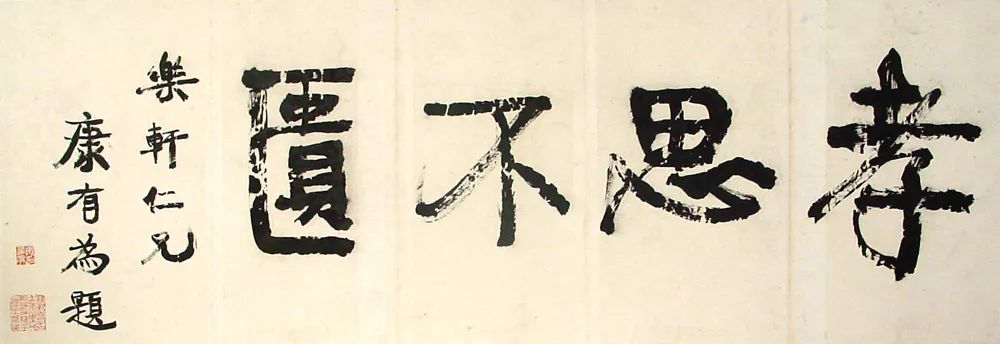 孝思不匱
樂軒仁兄
康有為題